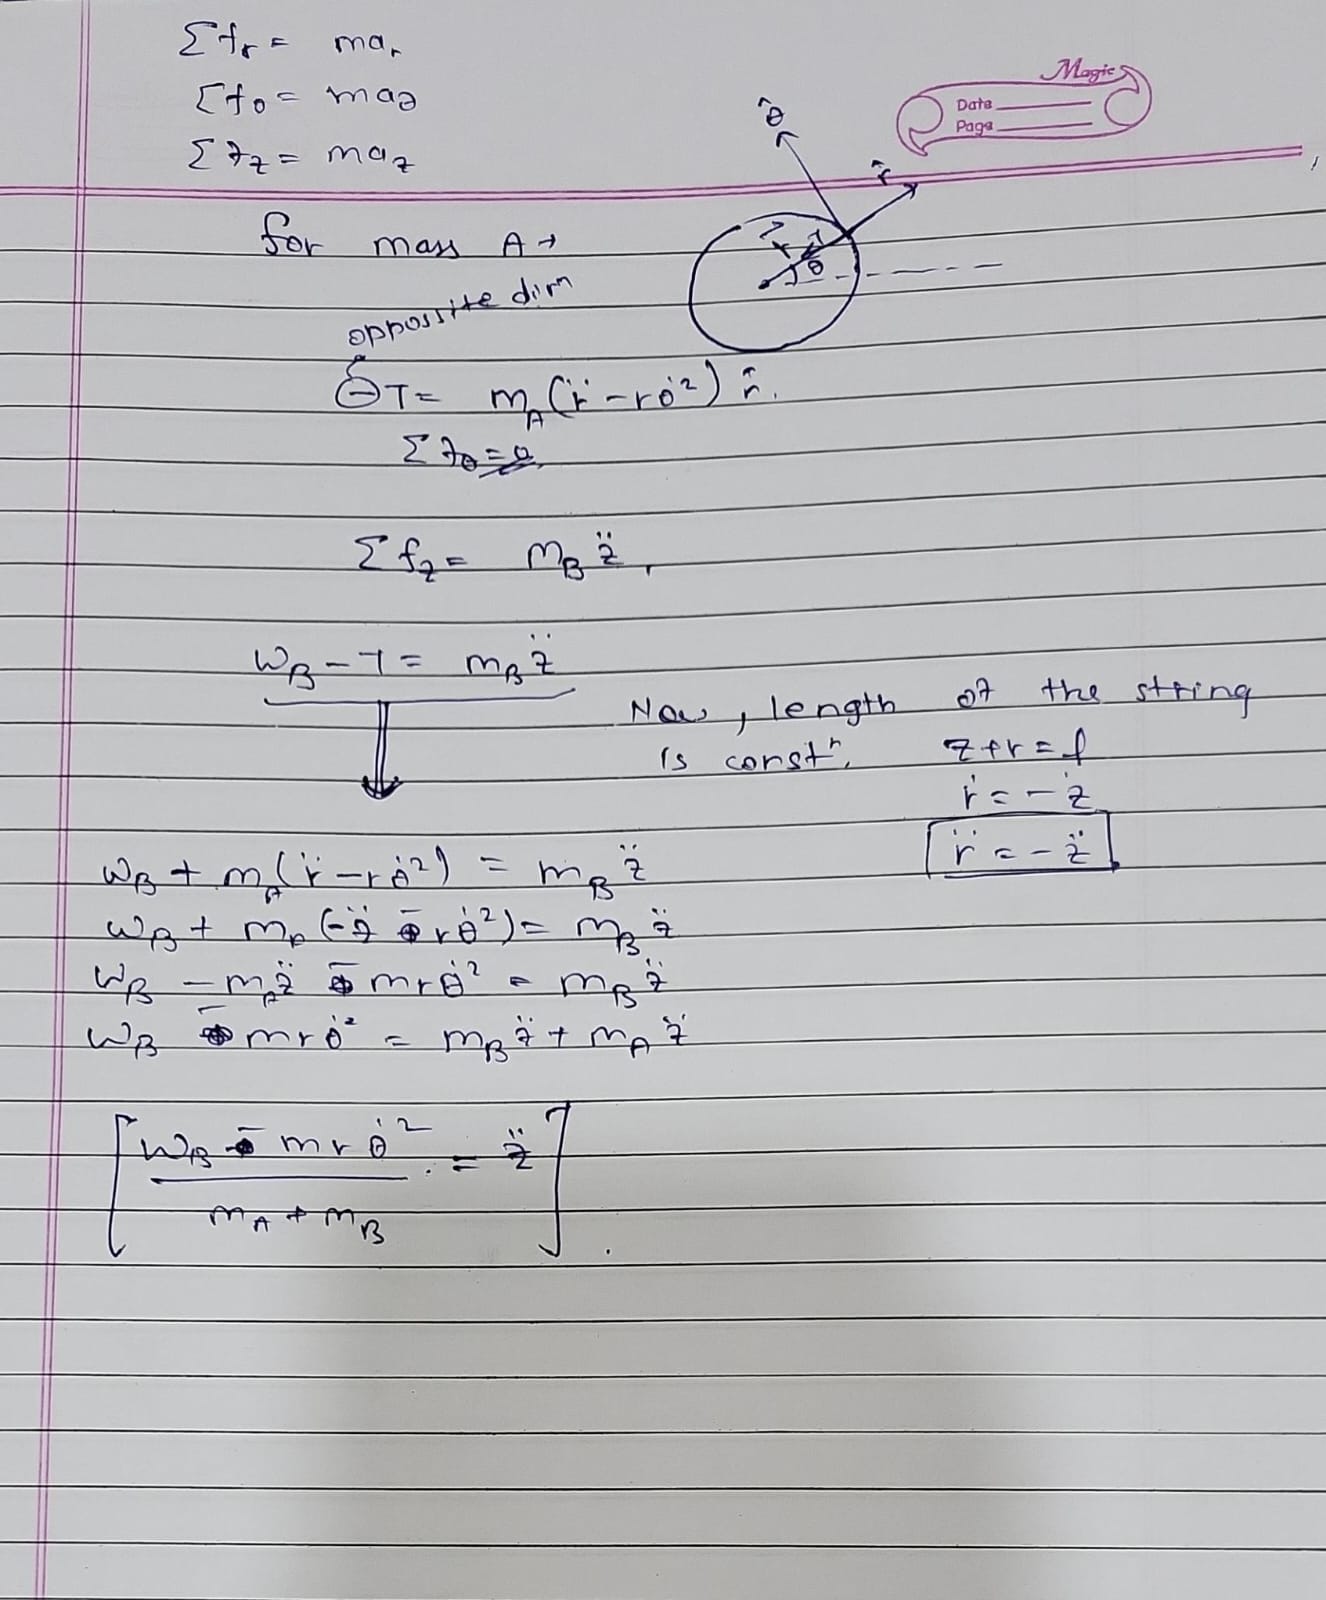 Σfr = mar
Σfθ = maθ
Σfz = maz
Magic
Date
Page
θ̂
r̂
T
θ
for mass A →
oppossite dirn
⊖T = mA(r̈ - rθ̇²) r̂.
Σfθ = 0
Σfz = mB z̈,
WB - T = mB z̈
Now, length of the string
is constn. z + r = l
ṙ = - ż
r̈ = - z̈
WB + mA(r̈ - rθ̇²) = mB z̈
WB + mA(-z̈ - rθ̇²) = mB z̈
WB - mA z̈ - mrθ̇² = mB z̈
WB - mrθ̇² = mB z̈ + mA z̈
WB - mrθ̇² = z̈
mA + mB